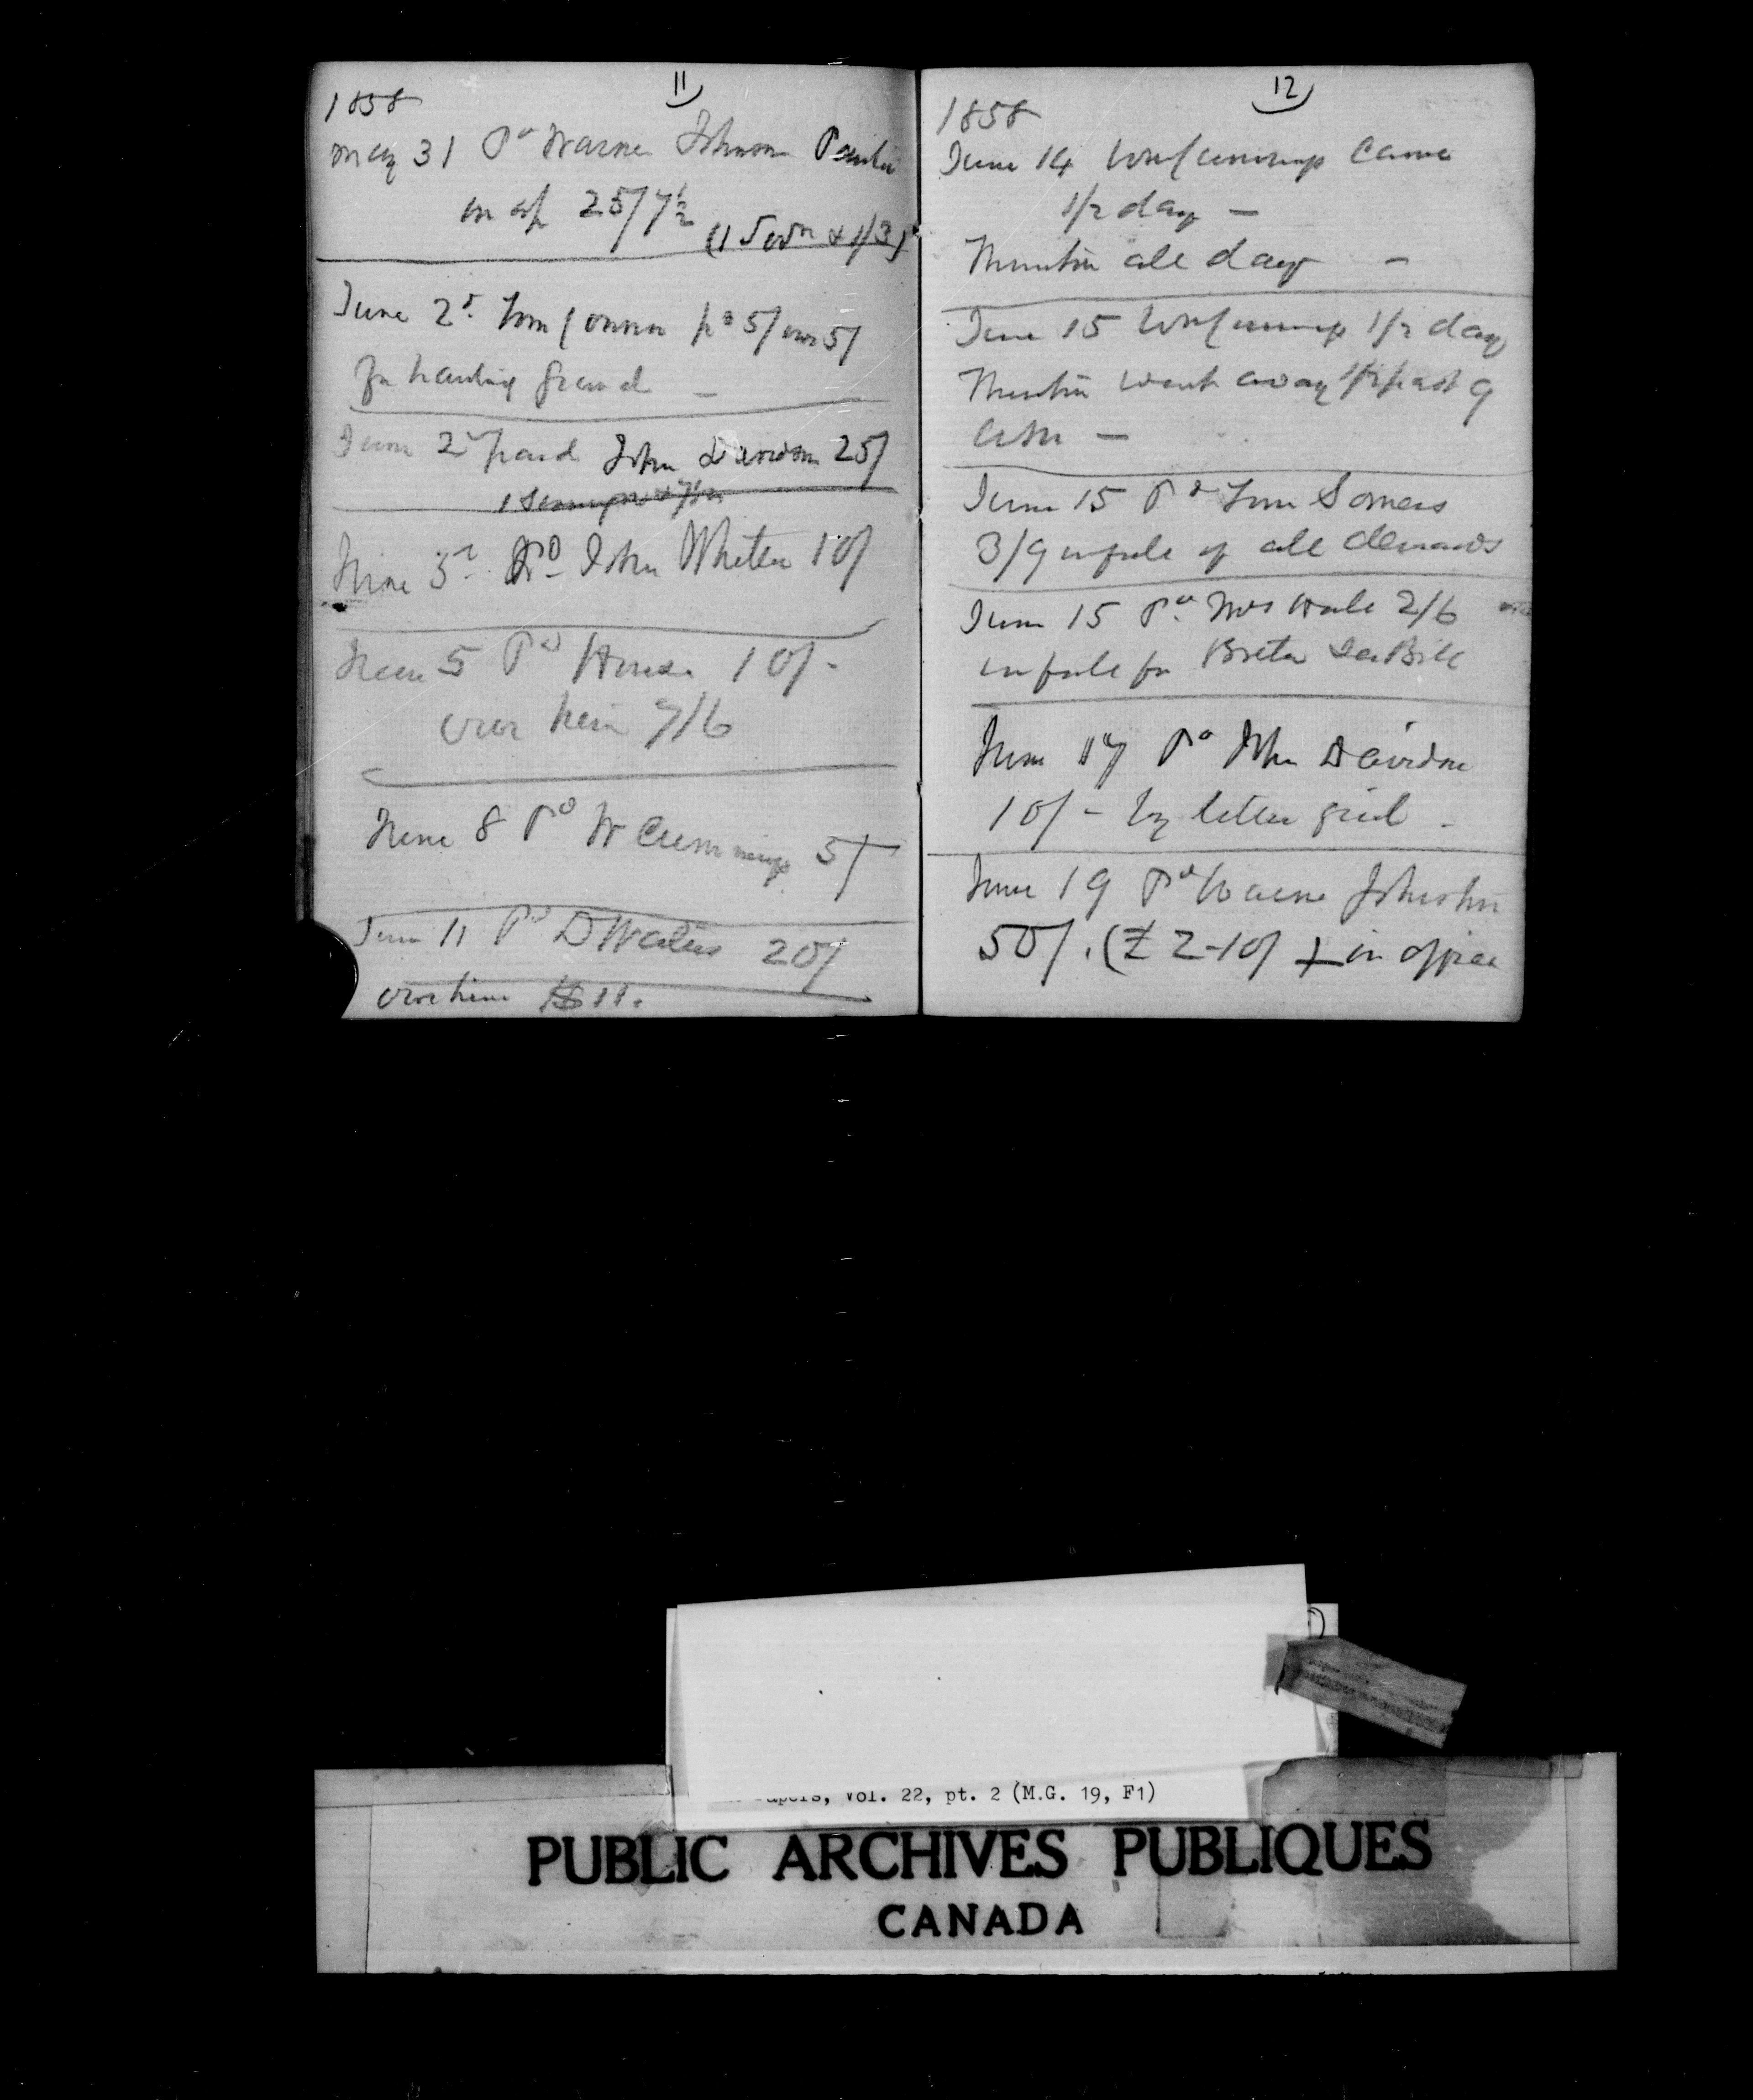 11
1858
May 31 Pd Warner Johnson
on a/c 25/7½
June 2d Tom Connor pd 5/ owe 5/
for hauling
June 2d paid John Davidson 25/
June 3d Pd John Whiten 10/
June 5 Pd House 10/-
owe him 7/6
June 8 Pd W Cummings 5/
June 11 Pd D Walters 20/
owe him 11.
12
1858
June 14 Wm Cummings Came
1/2 day —
Martin all day —
June 15 Wm Cummings 1/2 day
Martin went away 1/2 past 9
June 15 Pd Tom Somers
3/9 in full of all demands
June 15 Pd Mrs Hale 2/6
in full for Bill
June 17 Pd John Davidson
10/- by letter
June 19 Pd Warner Johnson
50/. (£ 2-10/ in office
Papers, Vol. 22, pt. 2 (M.G. 19, F1)
PUBLIC ARCHIVES PUBLIQUES
CANADA